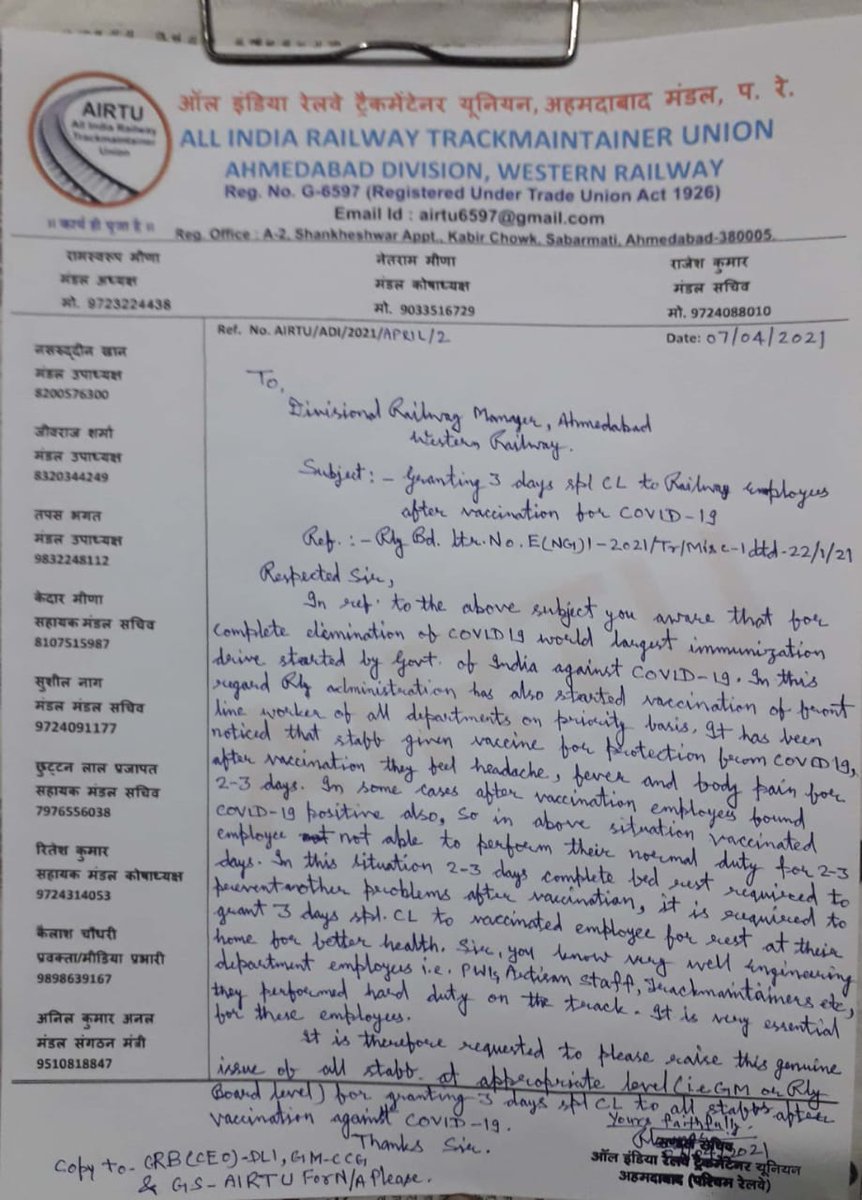 AIRTU
All India Railway
Trackmaintainer
Union
ऑल इंडिया रेलवे ट्रैकमेंटेनर यूनियन, अहमदाबाद मंडल, प. रे.
ALL INDIA RAILWAY TRACKMAINTAINER UNION
AHMEDABAD DIVISION, WESTERN RAILWAY
Reg. No. G-6597 (Registered Under Trade Union Act 1926)
Email Id : airtu6597@gmail.com
॥ कार्य ही पूजा है ॥
Reg. Office : A-2, Shankheshwar Appt., Kabir Chowk, Sabarmati, Ahmedabad-380005.
रामस्वरुप मीणा
मंडल अध्यक्ष
मो. 9723224438
नेतराम मीणा
मंडल कोषाध्यक्ष
मो. 9033516729
राजेश कुमार
मंडल सचिव
मो. 9724088010
नसरुद्दीन खान
मंडल उपाध्यक्ष
8200576300
जीवराज शर्मा
मंडल उपाध्यक्ष
8320344249
तपस भगत
मंडल उपाध्यक्ष
9832248112
केदार मीणा
सहायक मंडल सचिव
8107515987
सुशील नाग
मंडल मंडल सचिव
9724091177
छुट्टन लाल प्रजापत
सहायक मंडल सचिव
7976556038
रितेश कुमार
सहायक मंडल कोषाध्यक्ष
9724314053
कैलाश चौधरी
प्रवक्ता/मीडिया प्रभारी
9898639167
अनिल कुमार अनल
मंडल संगठन मंत्री
9510818847
Ref. No. AIRTU/ADI/2021/APRIL/2
Date: 07/04/2021
To,
Divisional Railway Manager, Ahmedabad
Western Railway.
Subject: - Granting 3 days spl CL to Railway employees
after vaccination for COVID-19
Ref. :- Rly Bd. ltr. No. E(NG)I-2021/Tr/Misc-1 dtd-22/1/21
Respected Sir,
In ref. to the above subject you aware that for
complete elemination of COVID19 world largest immunization
drive started by Govt. of India against COVID-19. In this
regard Rly administration has also started vaccination of front
line worker of all departments on priority basis. It has been
noticed that staff given vaccine for protection from COVID19,
after vaccination they feel headache, fever and body pain for
2-3 days. In some cases after vaccination employees found
COVID-19 positive also, so in above situation vaccinated
employee not able to perform their normal duty for 2-3
days. In this situation 2-3 days complete bed rest required to
prevent other problems after vaccination, it is required to
grant 3 days spl. CL to vaccinated employee for rest at their
home for better health. Sir, you know very well engineering
department employees i.e. PWIs, Artisan staff, Trackmaintainers etc,
they performed hard duty on the track. It is very essential
for these employees.
It is therefore requested to please raise this genuine
issue of all staff at appropriate level (i.e GM or Rly
Board level) for granting 3 days spl CL to all staffs after
vaccination against COVID-19.
Thanks Sir.
Yours faithfully
2021
मण्डल सचिव
ऑल इंडिया रेलवे ट्रैकमेंटेनर यूनियन
अहमदाबाद (पश्चिम रेलवे)
Copy to- CRB(CEO)-DLI, GM-CCG
& GS- AIRTU For N/A Please.